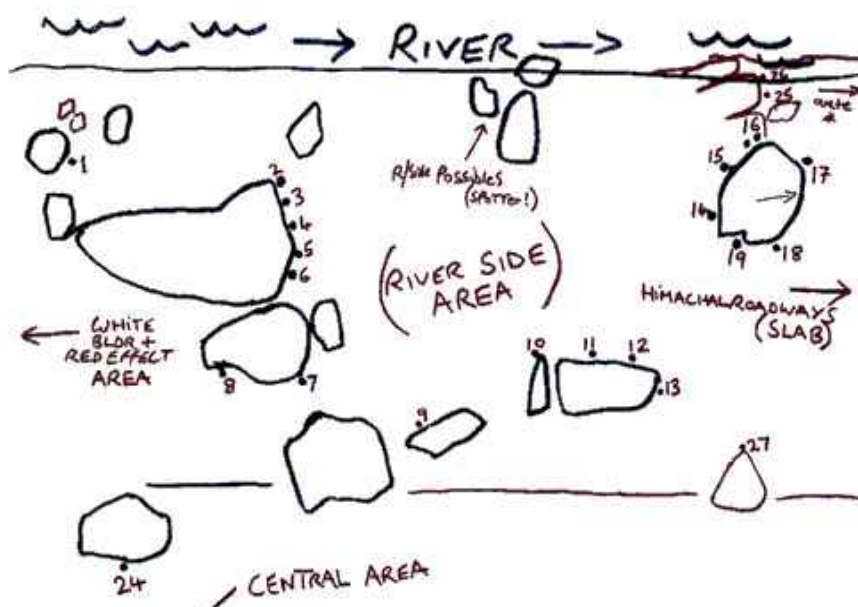 RIVER
26
25
arete
16
1
R/side Possibles
(SPOTTED!)
15
17
2
3
14
4
5
6
19
18
(RIVER SIDE
AREA)
HIMACHAL ROADWAYS
(SLAB)
WHITE
BLDR +
RED EFFECT
AREA
10
11
12
8
7
13
9
27
24
CENTRAL AREA